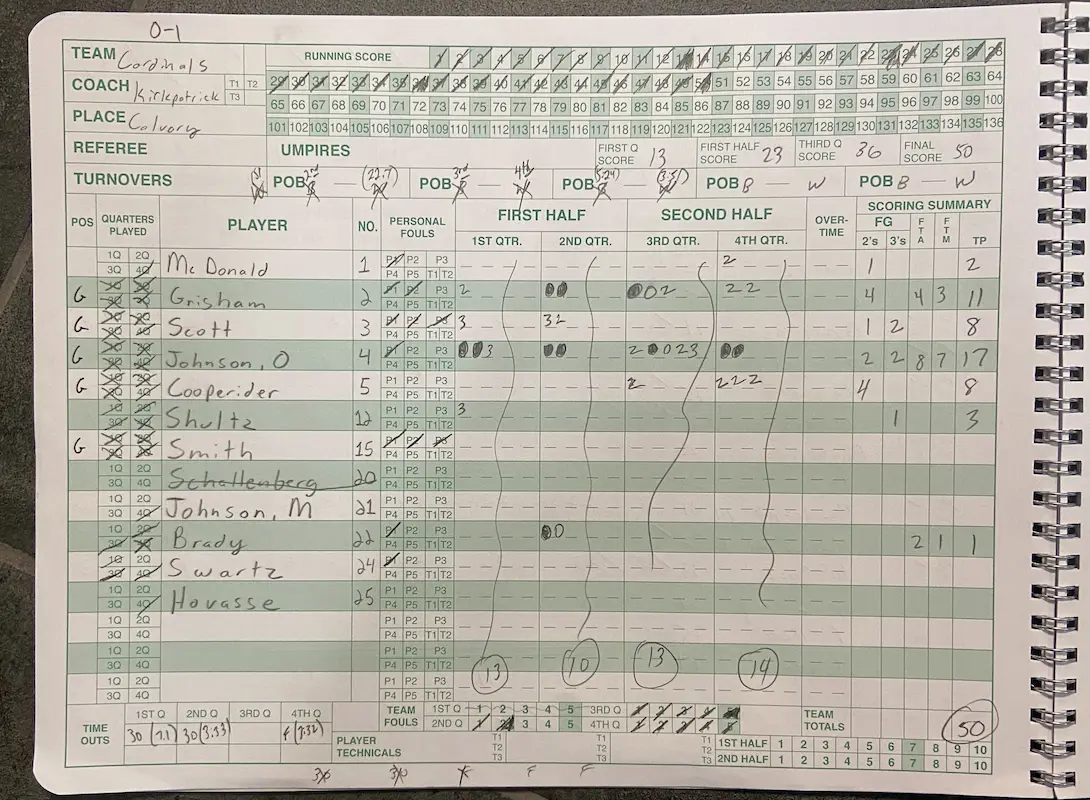 0-1
TEAM Cardinals RUNNING SCORE 1 2 3 4 5 6 7 8 9 10 11 12 13 14 15 16 17 18 19 20 21 22 23 24 25 26 27 28
COACH Kirkpatrick T1 T2 T3 29 30 31 32 33 34 35 36 37 38 39 40 41 42 43 44 45 46 47 48 49 50 51 52 53 54 55 56 57 58 59 60 61 62 63 64
65 66 67 68 69 70 71 72 73 74 75 76 77 78 79 80 81 82 83 84 85 86 87 88 89 90 91 92 93 94 95 96 97 98 99 100
PLACE Calvory 101 102 103 104 105 106 107 108 109 110 111 112 113 114 115 116 117 118 119 120 121 122 123 124 125 126 127 128 129 130 131 132 133 134 135 136
REFEREE UMPIRES FIRST Q SCORE 13 FIRST HALF SCORE 23 THIRD Q SCORE 36 FINAL SCORE 50
TURNOVERS POB 2nd (22.7) POB 3rd 4th POB (5:24) (3:51) POB B — W POB B — W
POS QUARTERS PLAYED PLAYER NO. PERSONAL FOULS FIRST HALF SECOND HALF OVER-TIME SCORING SUMMARY
1ST QTR. 2ND QTR. 3RD QTR. 4TH QTR. FG 2's 3's FTA FTM TP
1Q 2Q 3Q 4Q McDonald 1 P1 P2 P3 P4 P5 T1 T2 2 1 2
G 1Q 2Q 3Q 4Q Grisham 2 P1 P2 P3 P4 P5 T1 T2 2 00 002 22 4 4 3 11
G 1Q 2Q 3Q 4Q Scott 3 P1 P2 P3 P4 P5 T1 T2 3 32 1 2 8
G 1Q 2Q 3Q 4Q Johnson, O 4 P1 P2 P3 P4 P5 T1 T2 003 00 20023 00 2 2 8 7 17
G 1Q 2Q 3Q 4Q Cooperider 5 P1 P2 P3 P4 P5 T1 T2 2 222 4 8
1Q 2Q 3Q 4Q Shultz 12 P1 P2 P3 P4 P5 T1 T2 3 1 3
G 1Q 2Q 3Q 4Q Smith 15 P1 P2 P3 P4 P5 T1 T2
1Q 2Q 3Q 4Q Schallenberg 20 P1 P2 P3 P4 P5 T1 T2
1Q 2Q 3Q 4Q Johnson, M 21 P1 P2 P3 P4 P5 T1 T2
1Q 2Q 3Q 4Q Brady 22 P1 P2 P3 P4 P5 T1 T2 00 2 1 1
1Q 2Q 3Q 4Q Swartz 24 P1 P2 P3 P4 P5 T1 T2
1Q 2Q 3Q 4Q Hovasse 25 P1 P2 P3 P4 P5 T1 T2
1Q 2Q 3Q 4Q P1 P2 P3 P4 P5 T1 T2
1Q 2Q 3Q 4Q P1 P2 P3 P4 P5 T1 T2 13 10 13 14
1Q 2Q 3Q 4Q P1 P2 P3 P4 P5 T1 T2
TIME OUTS 1ST Q 2ND Q 3RD Q 4TH Q TEAM FOULS 1ST Q 1 2 3 4 5 3RD Q 1 2 3 4 5 TEAM TOTALS 50
30 (7.1) 30 (3:33) f (7:32) 2ND Q 1 2 3 4 5 4TH Q 1 2 3 4 5
PLAYER TECHNICALS T1 T2 T3 T1 T2 T3 T1 T2 T3 1ST HALF 1 2 3 4 5 6 7 8 9 10
2ND HALF 1 2 3 4 5 6 7 8 9 10
30 30 F F F